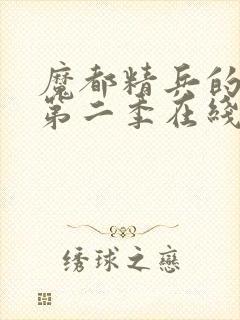 魔都精兵的
第二季在线
绣球之恋